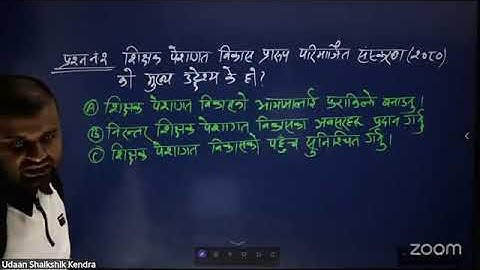 प्रश्न नं १ शिक्षक पेशागत विकास प्रारुप परिमार्जित संस्करण (२०८०)
को मुख्य उद्देश्य के हो?
Ⓐ शिक्षक पेशागत विकासको आयामलाई फराकिलो बनाउनु।
Ⓑ निरन्तर शिक्षक पेशागत विकासका अवसरहरू प्रदान गर्नु
Ⓒ शिक्षक पेशागत विकासको पहुँच सुनिश्चित गर्नु।
Udaan Shaikshik Kendra
ZOOM